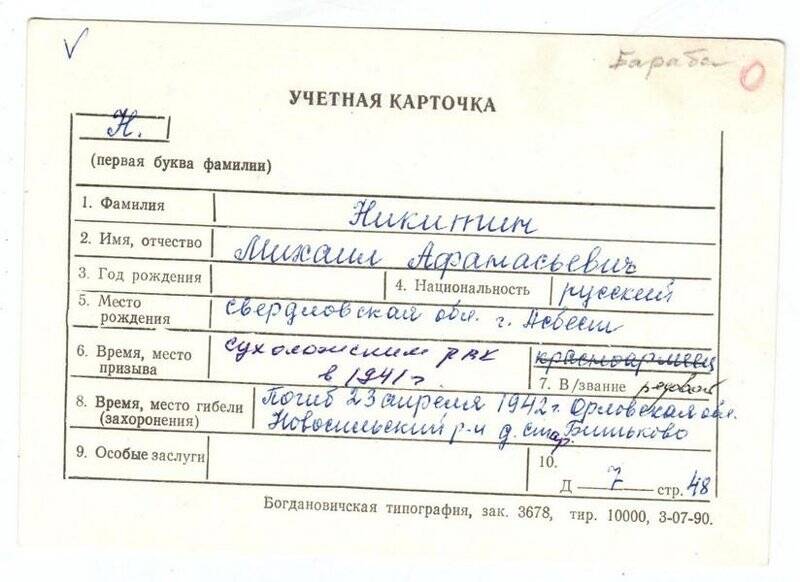 Бараба
УЧЕТНАЯ КАРТОЧКА
Н.
(первая буква фамилии)
1. Фамилия Никитин
2. Имя, отчество Михаил Афанасьевич
3. Год рождения 4. Национальность русский
5. Место рождения свердловская обл. г. Асбест
6. Время, место призыва сухоложским РВК в 1941г.
красноармеец
7. В/звание рядовой
8. Время, место гибели (захоронения) Погиб 23 апреля 1942г. Орловская обл.
Новосильский р-н д. Стар. Битьково
9. Особые заслуги
10.
Д 7 стр. 48
Богдановичская типография, зак. 3678, тир. 10000, 3-07-90.